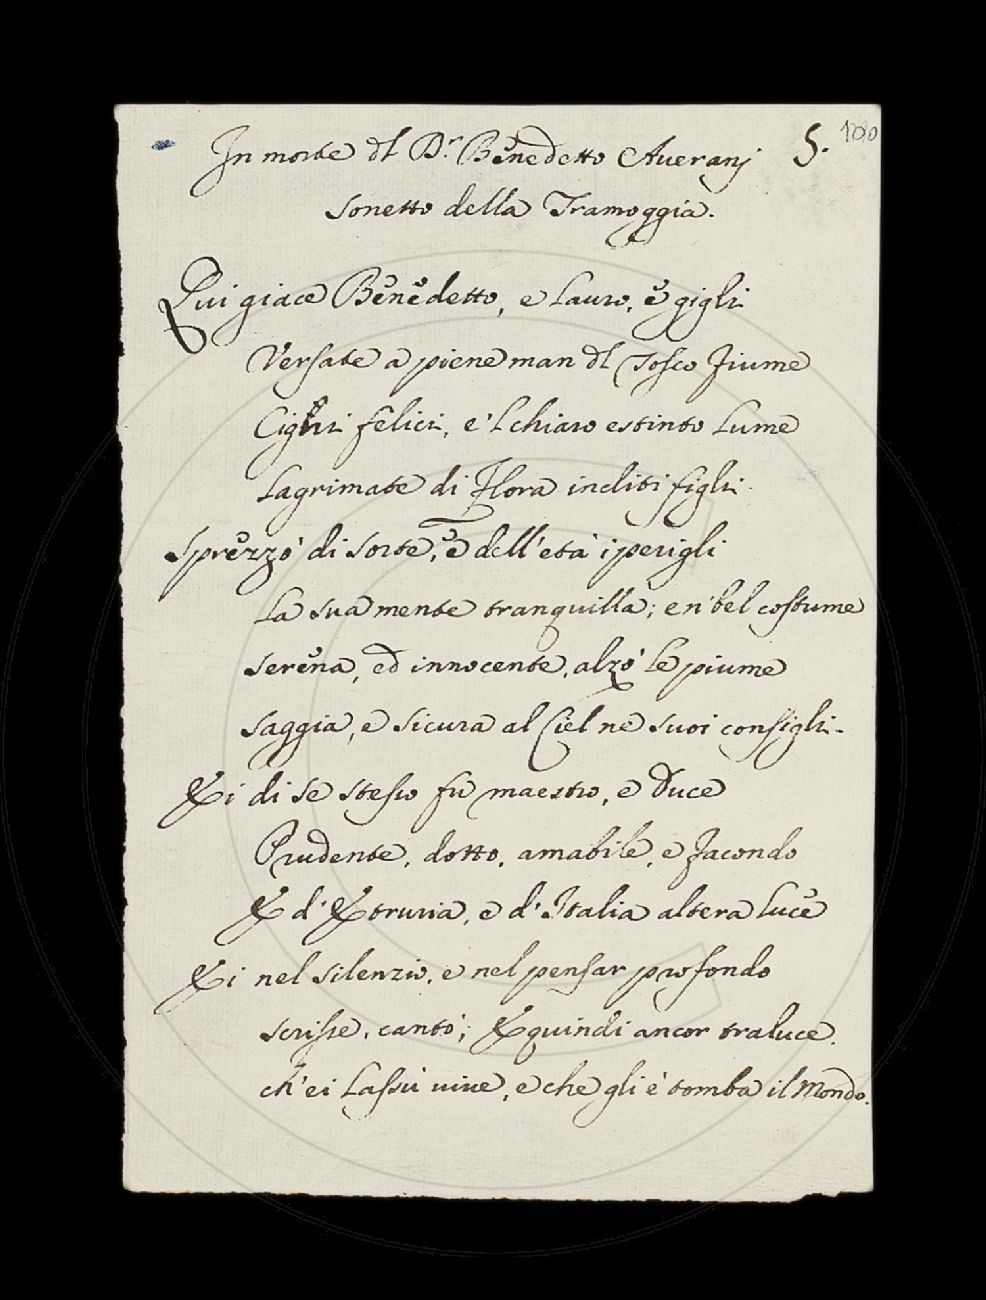 In morte dl Dr Benedetto Averanj 5. 120
Sonetto della Tramoggia.
Qui giace Benedetto, e Lauro, e gigli
Versate a piene man dl Tosco fiume
Cigni felici, e'l chiaro estinto Lume
Lagrimate di Flora incliti figli.
Sprezzò di sorte, e dell'età i perigli
La sua mente tranquilla; e n'bel costume
Serena, ed innocente, alzò le piume
Saggia, e sicura al Ciel ne suoi consigli.
Ei di se stesso fù maestro, e Duce
Prudente, dotto, amabile, e facondo
E d'Etruria, e d'Italia altera Luce
Ei nel silenzio, e nel pensar profondo
Scrisse, cantò; E quindi ancor traluce.
ch'ei Lassù vive, e che gli è tomba il Mondo.